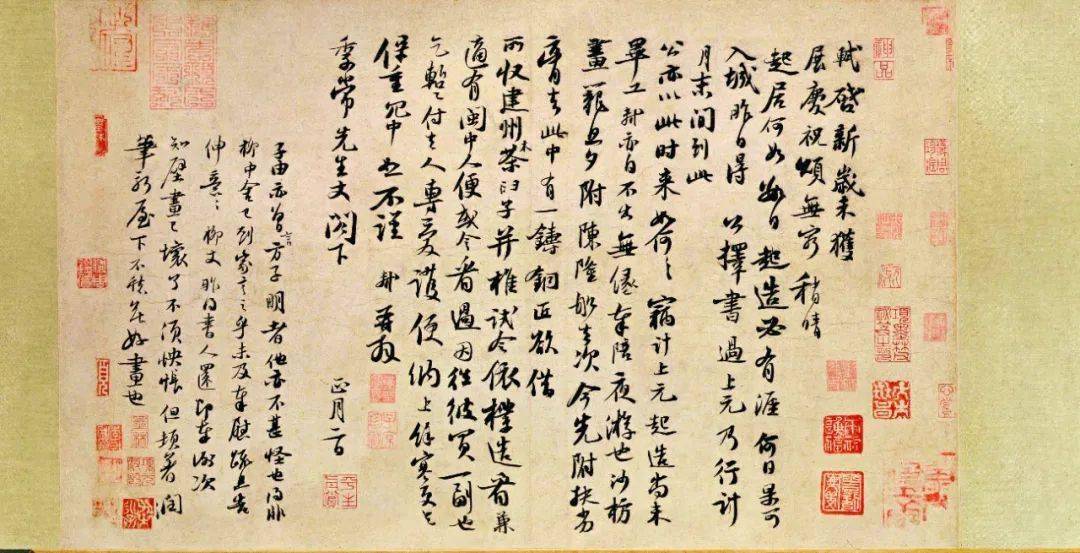 軾啓新歲未獲
展慶祝頌無窮稍晴
起居何如數日起造必有涯何日果可
入城昨日得 公擇書過上元乃行計
月末間到此
公亦以此時來如何〻竊計上元起造尚未
畢工軾亦自不出無緣奉陪夜游也沙枋
畫籠旦夕附陳隆船去次今先附扶劣
膏去此中有一鑄銅匠欲借
所收建州木茶臼子并椎試令依樣造看兼
適有閩中人便或令看過因往彼買一副也
乞暫付去人專愛護便納上餘寒更乞
保重冗中恕不謹 軾再拜
季常先生丈閣下 正月二日
子由亦曾言方子明者他亦不甚怪也得非
柳中舍已到家言之乎未及奉慰疏且告
伸意〻柳丈昨得書人還即奉謝次
知壁畫已壞了不須怏悵但頓著潤
筆新屋下不愁無好畫也